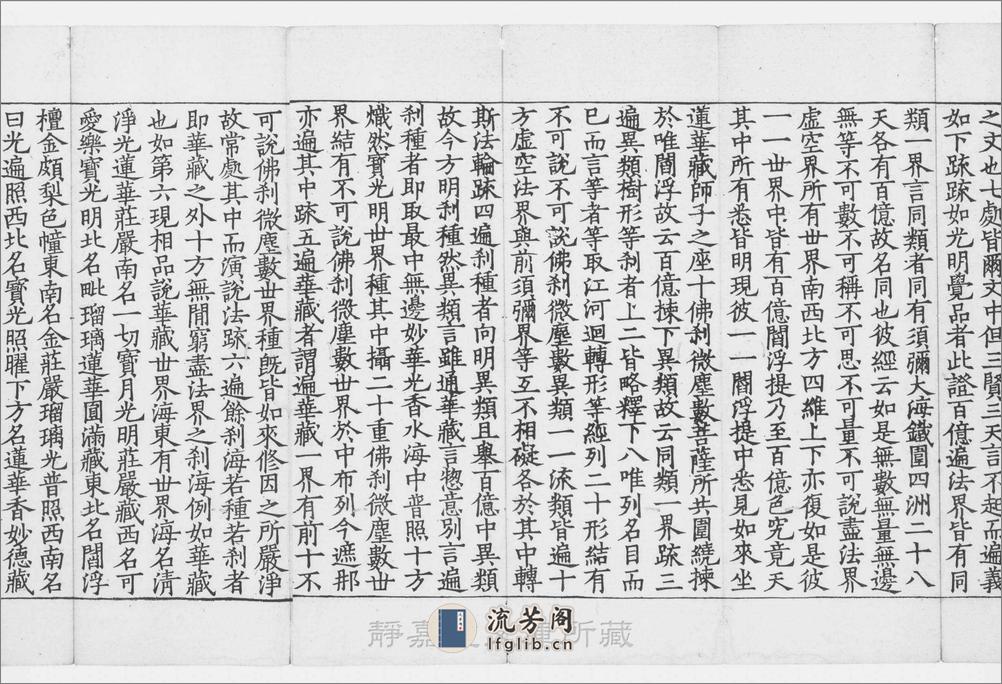 之文也七處皆爾文中但三賢三天言不起而遍義
如下疏疏如光明覺品者此證百億遍法界皆有同
類一界言同類者同有須彌大海鐵圍四洲二十八
天各有百億故名同也彼經云如是無數無量無邊
無等不可數不可稱不可思不可量不可說盡法界
虛空界所有世界南西北方四維上下亦復如是彼
一一世界中皆有百億閻浮提乃至百億色究竟天
其中所有悉皆明現彼一一閻浮提中悉見如來坐
蓮華藏師子之座十佛剎微塵數菩薩所共圍繞揀
於唯閻浮故云百億揀下異類故云同類一界疏三
遍異類樹形等剎者上二皆略釋下八唯列名目而
已而言等者等取江河迴轉形等經列二十形結有
不可說不可說佛剎微塵數異類一一流類皆遍十
方虛空法界與前須彌界等互不相礙各於其中轉
斯法輪疏四遍剎種者向明異類且舉百億中異類
故今方明剎種然異類言雖通華藏言惣意別言遍
剎種者即取最中無邊妙華光香水海中普照十方
熾然寶光明世界種其中攝二十重佛剎微塵數世
界結有不可說佛剎微塵數世界於中布列今遮那
亦遍其中疏五遍華藏者謂遍華藏一界有前十不
可說佛剎微塵數世界種旣皆如來修因之所嚴淨
故常處其中而演說法疏六遍餘剎海若種若剎者
即華藏之外十方無閒窮盡法界之剎海例如華藏
也如第六現相品說華藏世界海東有世界海名清
淨光蓮華莊嚴南名一切寶月光明莊嚴藏西名可
愛樂寶光明北名毗瑠璃蓮華圓滿藏東北名閻浮
檀金頗梨色幢東南名金莊嚴瑠璃光普照西南名
日光遍照西北名寶光照曜下方名蓮華香妙德藏
靜嘉 所藏
流芳阁
lfglib.cn